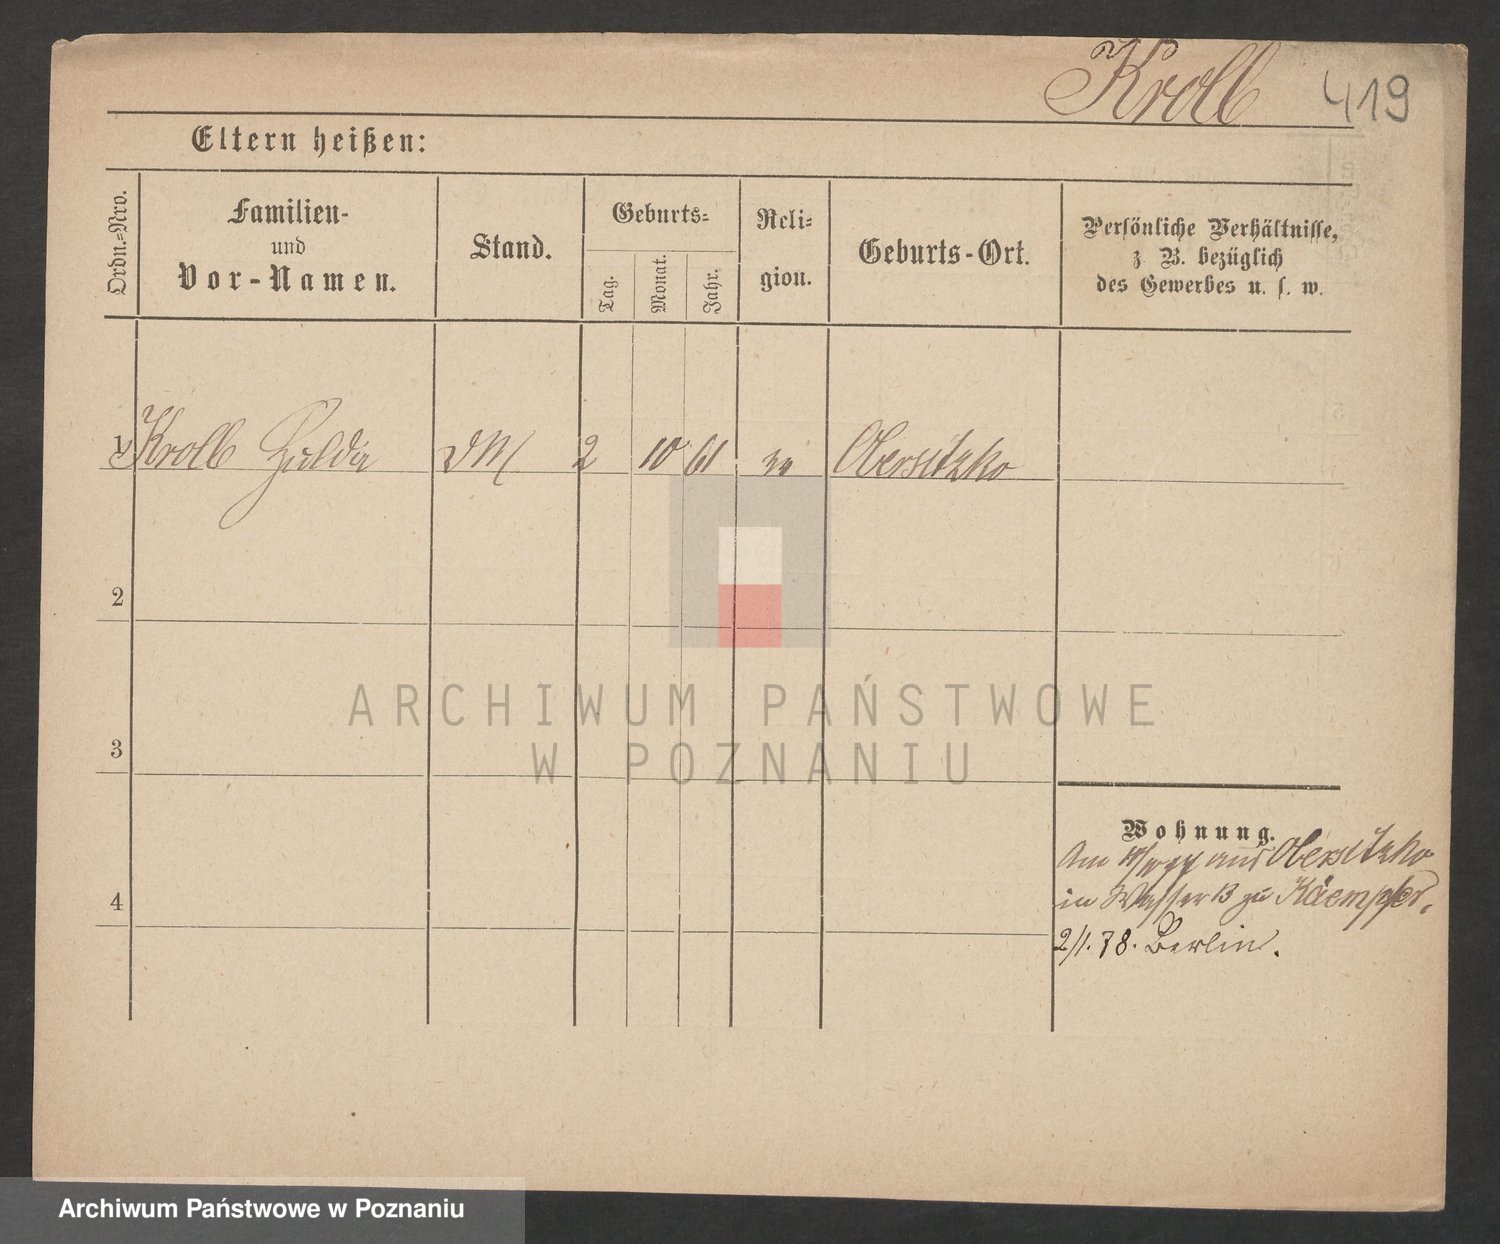 Kroll 419
Eltern heißen:
Ordn.=Nro.
Familien-
und
Vor-Namen.
Stand.
Geburts=
Tag.
Monat.
Jahr.
Reli=
gion.
Geburts-Ort.
Persönliche Verhältnisse,
z B. bezüglich
des Gewerbes u. s. w.
1 Kroll Hulda DM 2 10 61 Obersitzko
2
3
4
Wohnung.
Am aus Obersitzko
in Wasser 13 zu Kaempfer.
2/1. 78. Berlin.
ARCHIWUM PAŃSTWOWE
W POZNANIU
Archiwum Państwowe w Poznaniu